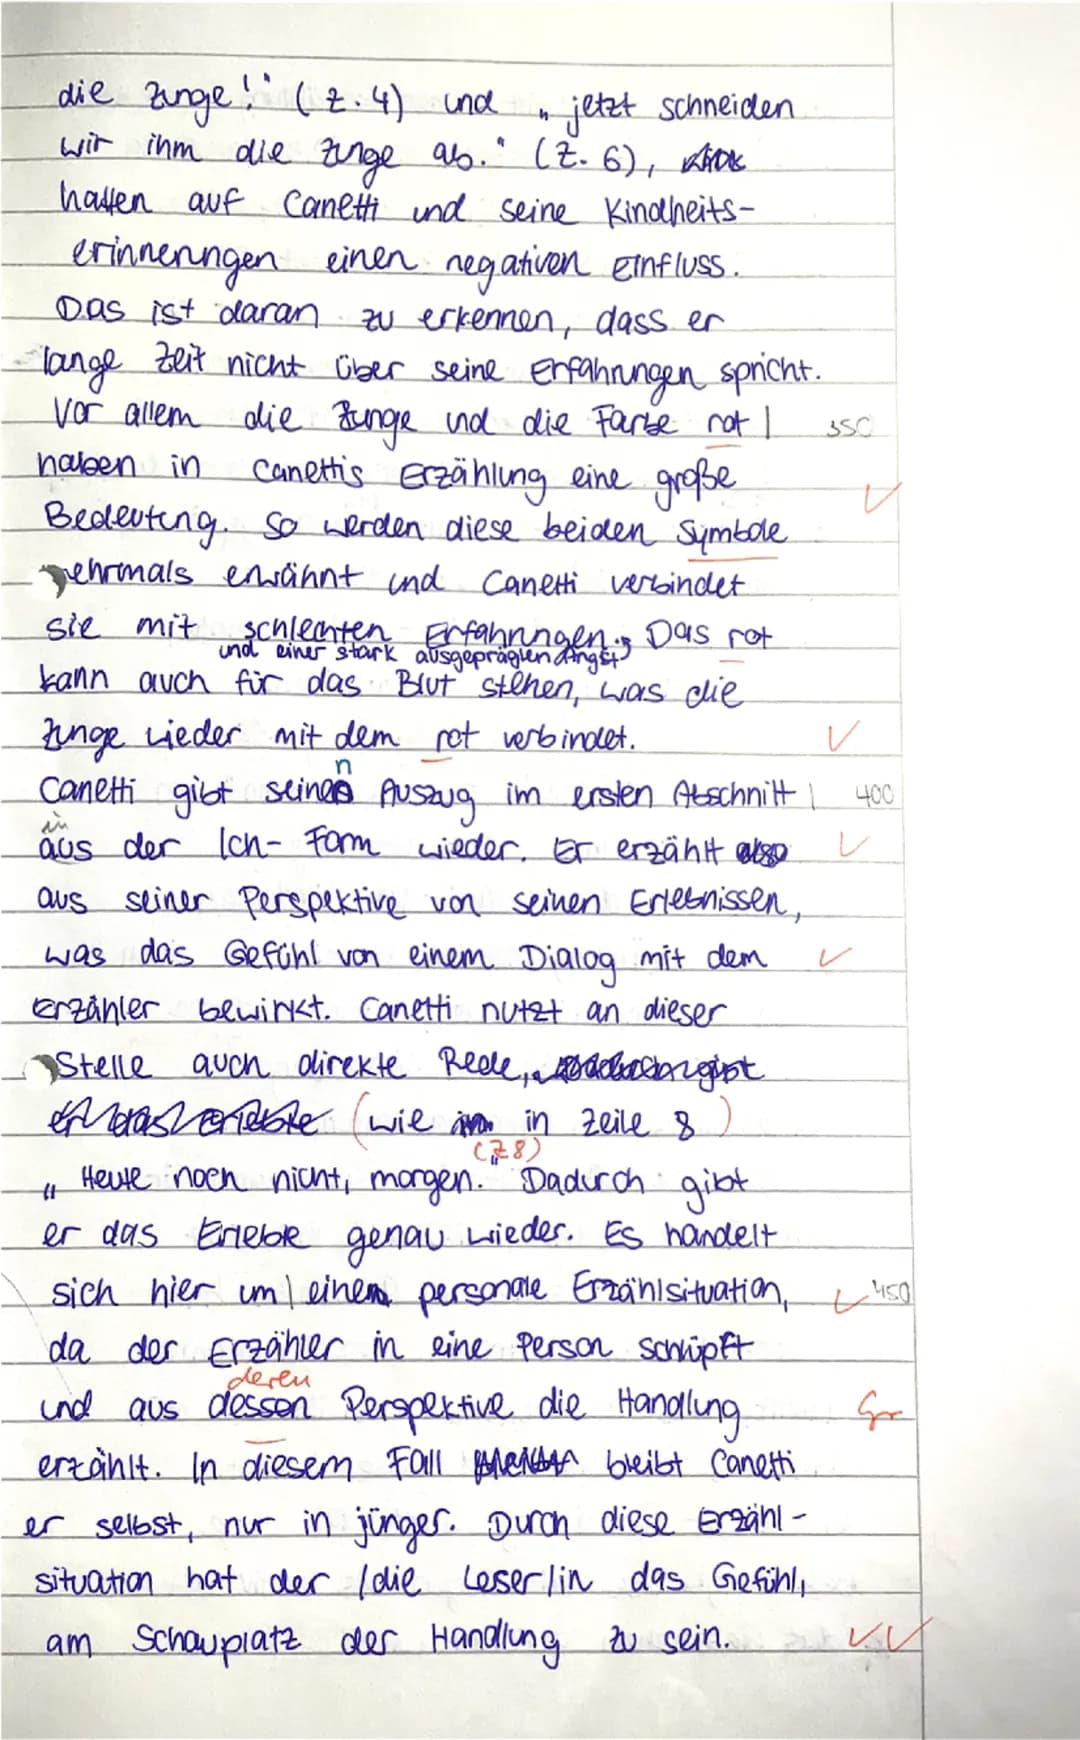 die Zunge!" (Z. 4) und „jetzt schneiden
wir ihm die Zunge ab." (Z. 6),
hatten auf Canetti und seine Kindheits-
erinnerungen einen negativen Einfluss.
Das ist daran zu erkennen, dass er
lange Zeit nicht über seine Erfahrungen spricht.
Vor allem die Zunge und die Farbe rot | 350
haben in Canettis Erzählung eine große
Bedeutung. So werden diese beiden Symbole
mehrmals erwähnt und Canetti verbindet
sie mit schlechten Erfahrungen. Das rot
und einer stark ausgeprägten Angst
kann auch für das Blut stehen, was die
Zunge wieder mit dem rot verbindet.
n
Canetti gibt seinen Auszug im ersten Abschnitt | 400
in
aus der Ich-Form wieder. Er erzählt also
aus seiner Perspektive von seinen Erlebnissen,
was das Gefühl von einem Dialog mit dem
Erzähler bewirkt. Canetti nutzt an dieser
Stelle auch direkte Rede,
(wie in Zeile 8)
(Z8)
„Heute noch nicht, morgen." Dadurch gibt
er das Erlebte genau wieder. Es handelt
sich hier um | eine personale Erzählsituation, 450
da der Erzähler in eine Person schlüpft
deren
und aus dessen Perspektive die Handlung Gr
erzählt. In diesem Fall bleibt Canetti
er selbst, nur in jünger. Durch diese Erzähl-
situation hat der /die Leser/in das Gefühl,
am Schauplatz der Handlung zu sein.